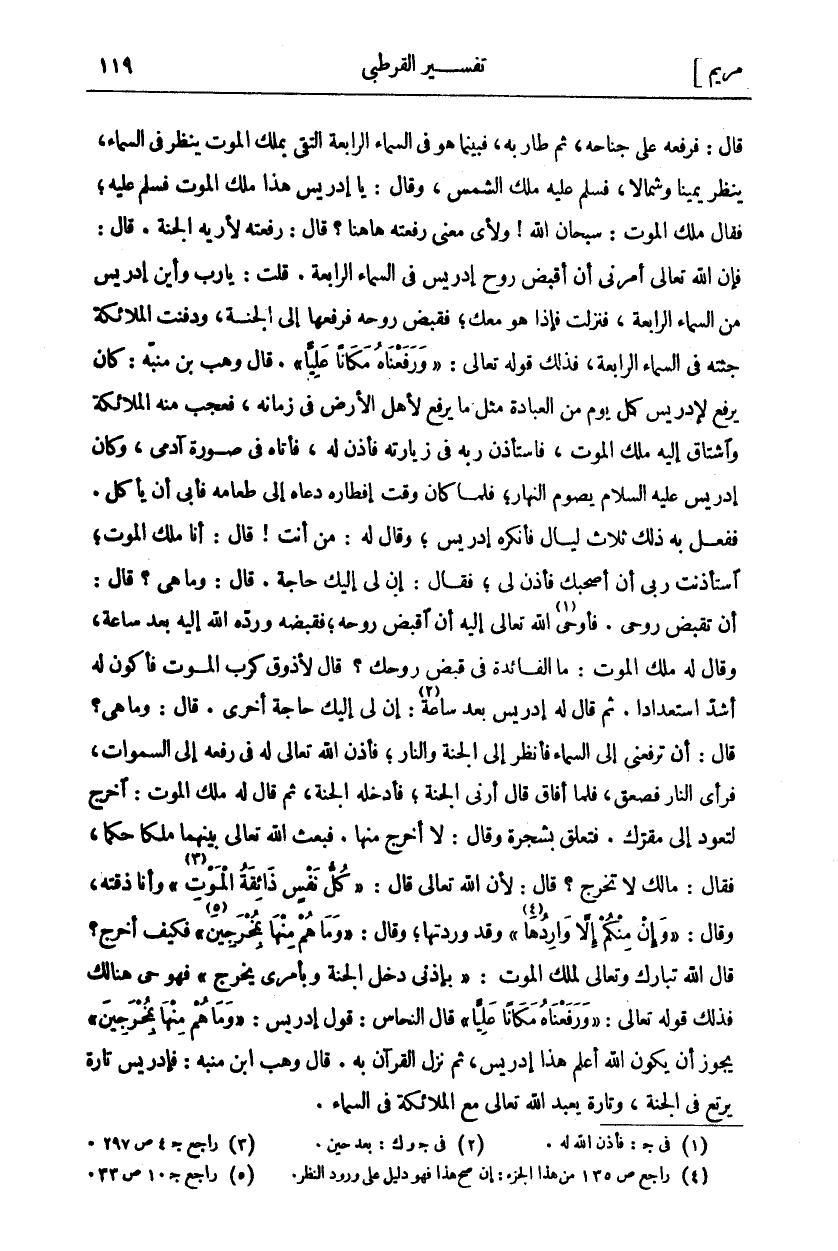 مريم ] تفســـير القرطبى ١١٩
قال : فرفعه على جناحه، ثم طار به، فبينما هو فى السماء الرابعة التقى بملك الموت ينظر فى السماء،
ينظر يمينا وشمالا، فسلم عليه ملك الشمس ، وقال : يا إدريس هذا ملك الموت فسلم عليه؛
فقال ملك الموت : سبحان الله ! ولأى معنى رفعته هاهنا ؟ قال : رفعته لأريه الجنة . قال :
فإن الله تعالى أمرنى أن أقبض روح إدريس فى السماء الرابعة . قلت : يارب وأين إدريس
من السماء الرابعة ، فنزلت فإذا هو معك؛ فقبض روحه فرفعها إلى الجنــة، ودفنت الملائكة
جثته فى السماء الرابعة، فذلك قوله تعالى : « وَرَفَعْنَاهُ مَكَانًا عَلِيًّا» . قال وهب بن منبّه : كان
يرفع لإدريس كل يوم من العبادة مثل ما يرفع لأهل الأرض فى زمانه ، فعجب منه الملائكة
وٱشتاق إليه ملك الموت ، فاستأذن ربه فى زيارته فأذن له ، فأتاه فى صــورة آدمى ، وكان
إدريس عليه السلام يصوم النهار؛ فلمــا كان وقت إفطاره دعاه إلى طعامه فأبى أن يأكل .
ففعــل به ذلك ثلاث ليــال فأنكره إدريس ؛ وقال له : من أنت ! قال : أنا ملك الموت؛
ٱستأذنت ربى أن أصحبك فأذن لى ؛ فقــال : إن لى إليك حاجة . قال : وما هى ؟ قال :
أن تقبض روحى . فأوحى (١) الله تعالى إليه أن ٱقبض روحه؛ فقبضه وردّه الله إليه بعد ساعة،
وقال له ملك الموت : ما الفــائدة فى قبض روحك ؟ قال لأذوق كرب المــوت فأكون له
أشدّ استعدادا . ثم قال له إدريس بعد ساعة (٢) : إن لى إليك حاجة أخرى . قال : وما هى؟
قال : أن ترفعنى إلى السماء فأنظر إلى الجنة والنار ؛ فأذن الله تعالى له فى رفعه إلى السموات،
فرأى النار فصعق، فلما أفاق قال أرنى الجنة ؛ فأدخله الجنة، ثم قال له ملك الموت : ٱخرج
لتعود إلى مقرّك . فتعلق بشجرة وقال : لا أخرج منها . فبعث الله تعالى بينهما ملكا حكما ،
فقال : مالك لا تخرج ؟ قال : لأن الله تعالى قال : « كُلُّ نَفْسٍ ذَائِقَةُ الْمَوْتِ (٣) » وأنا ذقته،
وقال : «وَإِنْ مِنْكُمْ إِلَّا وَارِدُهَا (٤) » وقد وردتها؛ وقال : «وَمَا هُمْ مِنْهَا بِمُخْرَجِينَ (٥)» فكيف أخرج؟
قال الله تبارك وتعالى لملك الموت : « بإذنى دخل الجنة وبأمرى يخرج » فهو حى هنالك
فذلك قوله تعالى : «وَرَفَعْنَاهُ مَكَانًا عَلِيًّا» قال النحاس : قول إدريس : «وَمَا هُمْ مِنْهَا بِمُخْرَجِينَ»
يجوز أن يكون الله أعلم هذا إدريس، ثم نزل القرآن به . قال وهب ابن منبه : فإدريس تارة
يرتع فى الجنة ، وتارة يعبد الله تعالى مع الملائكة فى السماء .
(١) فى جـ : فأذن الله له . (٢) فى جـ و ك : بعد حين . (٣) راجع جـ ٤ ص ٢٩٧ .
(٤) راجع ص ١٣٥ من هذا الجزء : إن صح هذا فهو دليل على ورود النظر. (٥) راجع جـ ١٠ ص ٣٣ .